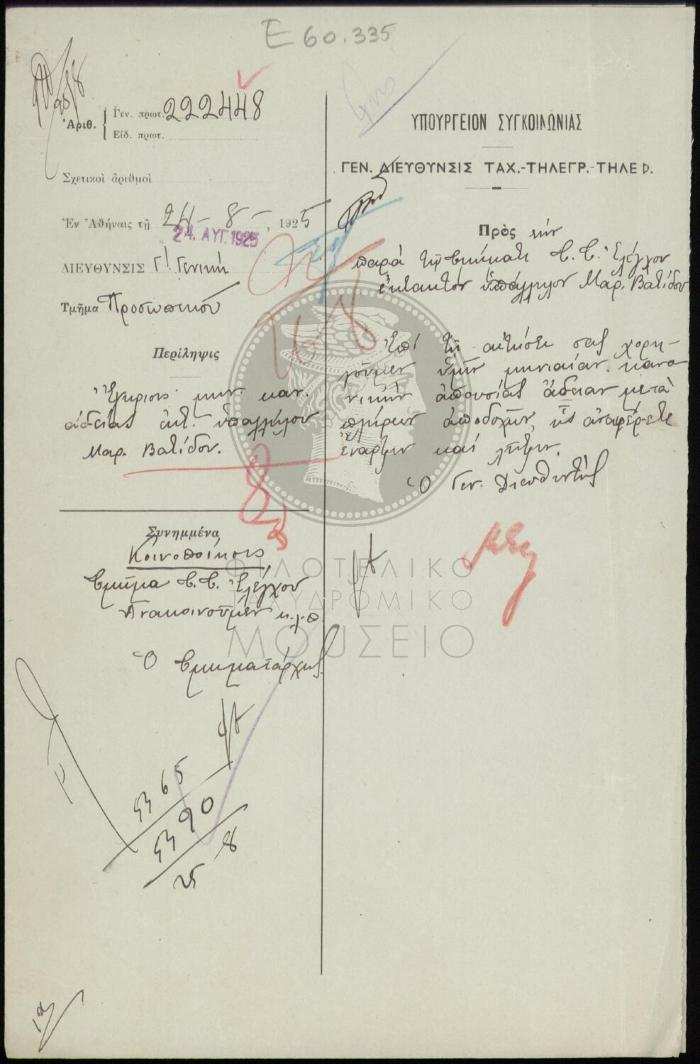 Ε 60.335
Ἀριθ.
Γεν. πρωτ. 222448
Εἰδ. πρωτ.
Σχετικοὶ ἀριθμοὶ
Ἐν Ἀθήναις τῇ 24-8-, 1925
24. ΑΥΓ. 1925
ΔΙΕΥΘΥΝΣΙΣ Γ! Γενικὴ
Τμῆμα Προσωπικοῦ
Περίληψις
Ἔγκρισις μην. καν.
ἀδείας ἐκτ. ὑπαλλήλου
Μαρ. Βατίδου.
Συνημμένα
Κοινοποίησις
Τμῆμα Τ.Τ. Ἐλέγχου
Ἀνακοινοῦμεν κ.λ.π
Ὁ Τμηματάρχης
5365
5390
25 8
ΥΠΟΥΡΓΕΙΟΝ ΣΥΓΚΟΙΝΩΝΙΑΣ
ΓΕΝ. ΔΙΕΥΘΥΝΣΙΣ ΤΑΧ.-ΤΗΛΕΓΡ.-ΤΗΛΕΦ.
Πρὸς τὴν
παρὰ τῷ Τμήματι Τ.Τ. Ἐλέγχου
ἔκτακτον ὑπάλληλον Μαρ. Βατίδου
Ἐπὶ τῇ αἰτήσει σας χορη-
γοῦμεν ὑμῖν μηνιαίαν κανο-
νικὴν ἀπουσίας ἄδειαν μετὰ
πλήρων ἀποδοχῶν, ἧς ἀναφέρετε
ἔναρξιν καὶ λῆξιν.
Ὁ Γεν. Διευθυντὴς
ΦΙΛΟΤΕΛΙΚΟ
ΤΑΧΥΔΡΟΜΙΚΟ
ΜΟΥΣΕΙΟ